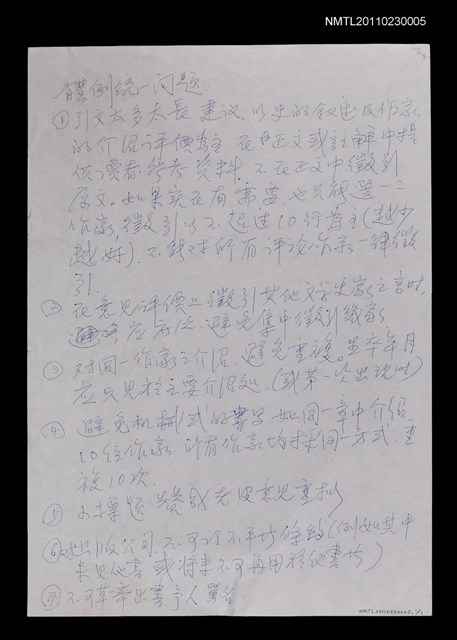 NMTL20110230005
體例統一问題
①引文太多太長 建议,以史的敘述及作家
的介绍评價為主 在正文或註解中提
供读者参考资料,不在正文中徵引
原文。如果实在有需要也只能選一二
作家,徵引以不超过10行為主(越少
越好),不能对所有评论作家一律徵
引.
② 在意见评價上徵引其他文学史家之言时,
应力求避免集中徵引幾家
③ 对同一作家之介绍,避免重複。生卒年月
应只见於主要介绍处,(或第一次出现时)
④ 避免机械式的書写 如同一章中介绍
10位作家,所有作家均採同一方式,重
複10次.
⑤ 小標題 贊成 意见重拟
⑥ 出版公司,不可订不平等條約(例如其中
未见他書,或将来不可再用於他書等)
⑦ 不可草率出書予人罵名
NMTL20110230005, 1/1